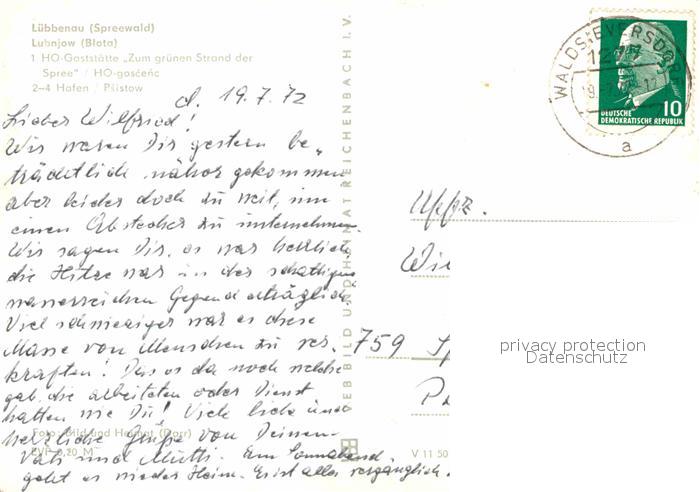 Lübbenau (Spreewald)
Lubnjow (Błota)
1 HO-Gaststätte „Zum grünen Strand der
Spree" / HO-gosćeńc
2–4 Hafen / Pśistow
d. 19.7.72
Lieber Wilfried!
Wir waren Dir gestern be„
trächtlich näher gekommen
aber leider doch zu weit, um
einen Abstecher zu unternehmen
Wir sagen Dir, es war herrlich
die Hitze war in der schattigen
wasserreichen Gegend erträglich.
Viel schwieriger war es diese
Masse von Menschen zu ver-
kraften! Das es da noch welche
gab, die arbeiteten oder Dienst
hatten wie Du! Viele liebe und
herzliche Grüße von Deinen
Vati und Mutti. Am Sonnabend
geht es wieder Heim. Es ist alles vergänglich.
Foto: Bild und Heimat (Darr)
EVP 0,20 M
V 11 50
VEB BILD UND HEIMAT REICHENBACH I. V.
WALDSIEVERSDORF
a
10
DEUTSCHE
DEMOKRATISCHE REPUBLIK
Uffz.
759
privacy protection
Datenschutz